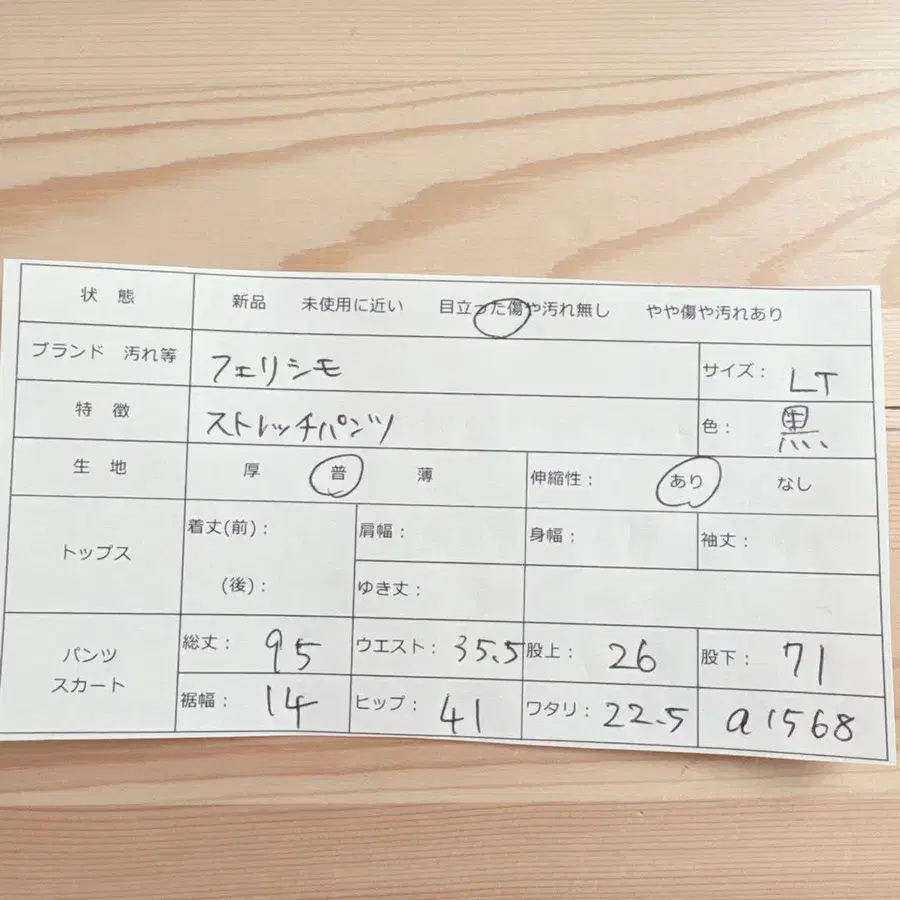 状 態 新品 未使用に近い 目立った傷や汚れ無し やや傷や汚れあり
ブランド 汚れ等 フェリシモ サイズ： LT
特 徴 ストレッチパンツ 色： 黒
生 地 厚 普 薄 伸縮性： あり なし
トップス 着丈(前)： 肩幅： 身幅： 袖丈：
(後)： ゆき丈：
パンツ スカート 総丈： 95 ウエスト： 35.5 股上： 26 股下： 71
裾幅： 14 ヒップ： 41 ワタリ： 22.5 a1568